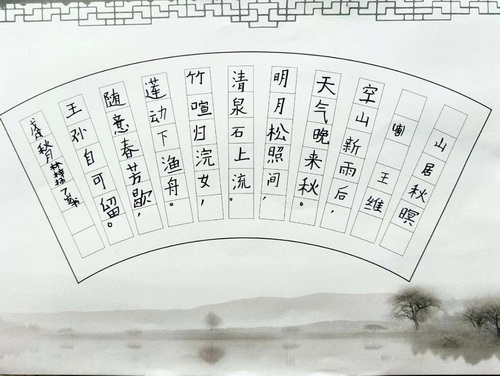 山居秋暝
王维
空山新雨后，
天气晚来秋。
明月松照间，
清泉石上流。
竹喧归浣女，
莲动下渔舟。
随意春芳歇，
王孙自可留。
秋月